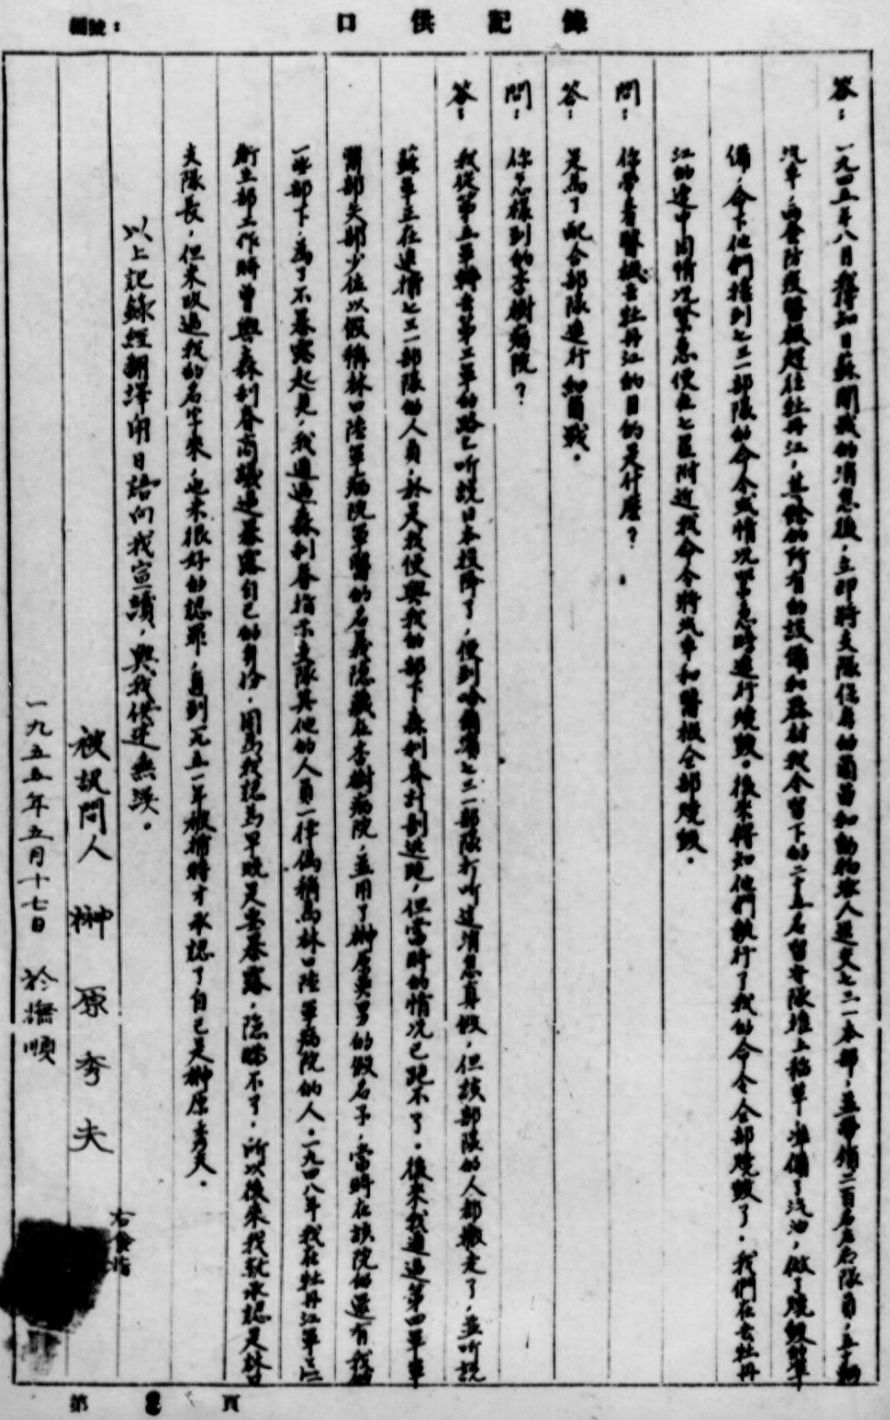 編號：
口供記錄
答：一九四五年八月獲知日蘇開戰的消息後，立即將支隊保存的菌苗和動物派人送交七三一本部，並帶領二百名左右隊員，
汽車，兩套防疫醫療趕往牡丹江，其餘的所有的設備和器材我令留下的二十五名留守隊堆上稻草，準備了汽油，做了燒毀的準
備，命令他們接到七三一部隊的命令或情況緊急時進行燒毀。後來得知他們執行了我的命令全部燒毀了。我們在去牡丹
江的途中因情況緊急便在七星附近我命令將汽車和醫機全部燒毀。
問：你帶着醫機去牡丹江的目的是什麼？
答：是為了配合部隊進行細菌戰。
問：你怎樣到的杏樹病院？
答：我從第五軍轉去第三軍的路上听說日本投降了，便到哈爾濱七三一部隊打听這消息真假，但該部隊的人都撤走了，並听說
蘇軍正在追捕七三一部隊的人員，於是我便與我的部下森利春計劃逃跑，但當時的情況已跑不了。後來我通過第四軍軍
醫部 部少佐以假稱林口陸軍病院軍醫的名義隱藏在杏樹病院，並用了榊原英男的假名子，當時在該院的還有我的
一些部下，為了不暴露起見，我通過森利春指示支隊其他的人員一律偽稱為林口陸軍病院的人。一九四八年我在牡丹江軍區
衛生部工作時曾與森利春商議過暴露自己的身份，因為我認為早晚是要暴露，隱瞞不了，所以後來我就承認是林口
支隊長，但未改過我的名字來，也未很好的認罪，直到一九五一年被捕時才承認了自己是榊原秀夫。
以上記錄經翻譯用日語向我宣讀，與我供述無誤。
被訊問人 榊原秀夫
右食指
一九五五年五月十七日 於撫順
第 2 頁